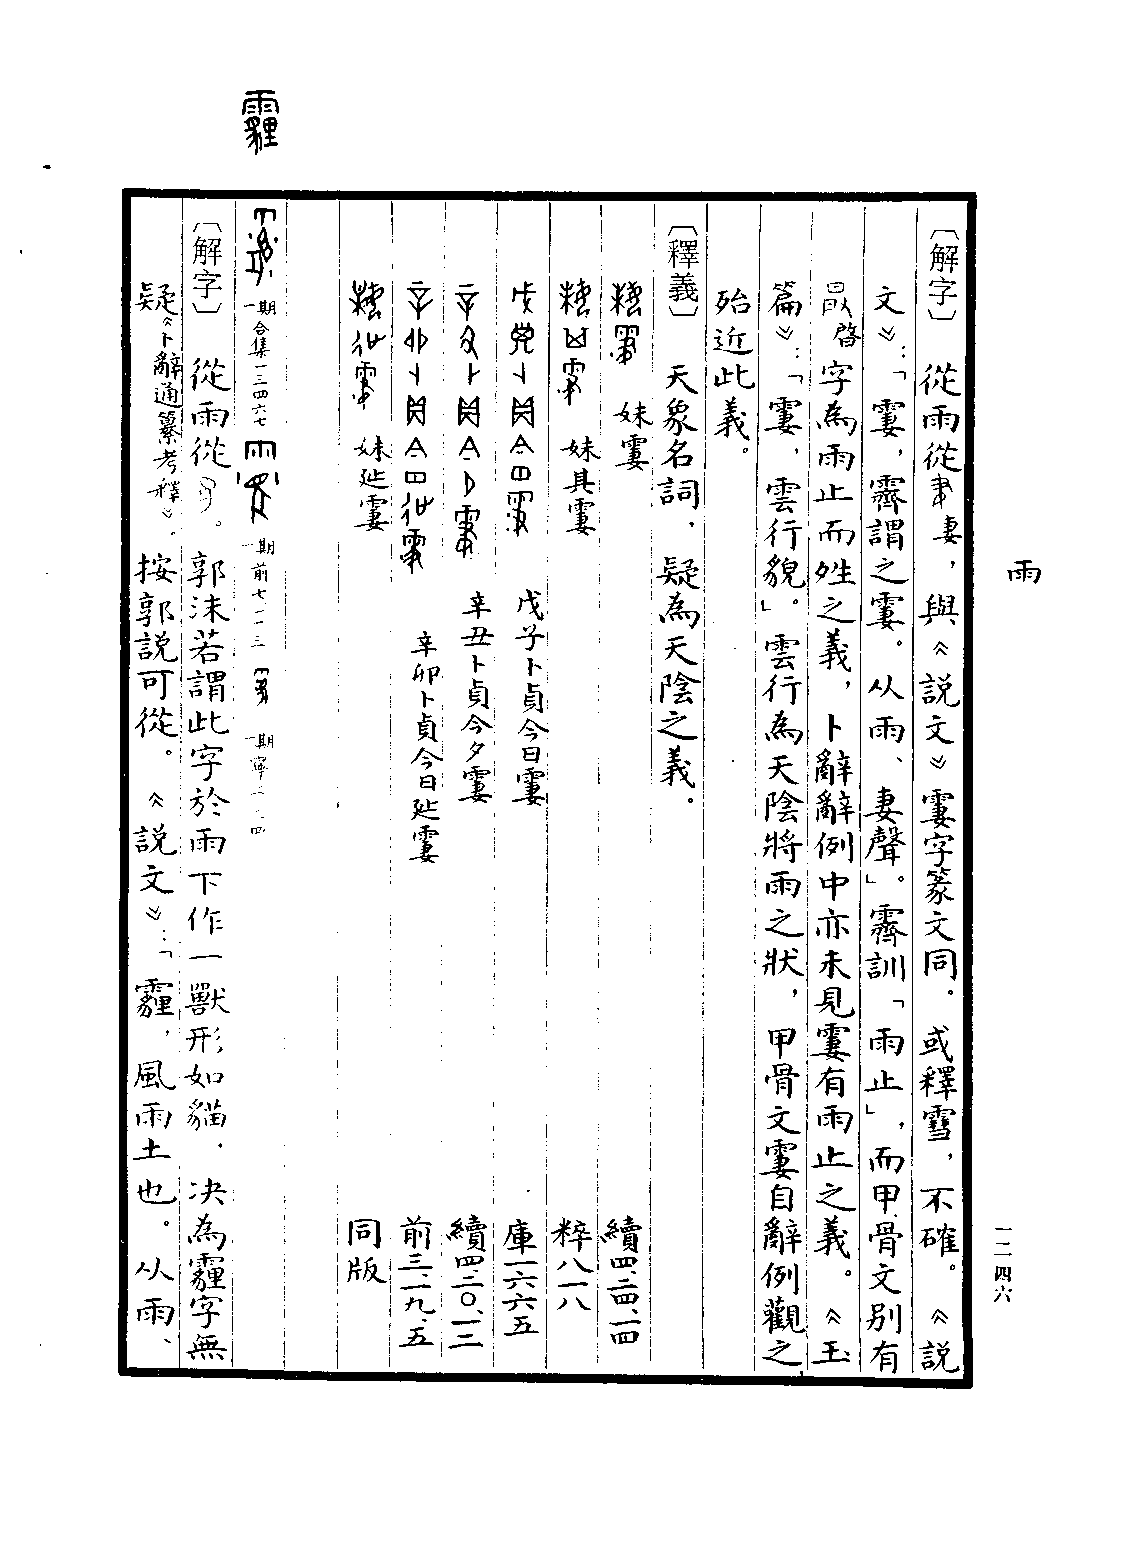 雨
一二四六
〔解字〕 從雨從妻，與《說文》霋字篆文同。或釋雪，不確。《說
文》：「霋，霽謂之霋。从雨、妻聲」。霽訓「雨止」，而甲骨文別有
啓字為雨止而夝之義，卜辭辭例中亦未見霋有雨止之義。《玉
篇》：「霋，雲行貌」。雲行為天陰將雨之狀，甲骨文霋自辭例觀之
殆近此義。
〔釋義〕 天象名詞，疑為天陰之義。
妹霋 續四．二四．一四
妹其霋 粹八一八
戊子卜貞今日霋 庫一六六五
辛丑卜貞今夕霋 續四．二〇．一二
辛卯卜貞今日延霋 前三．一九．五
妹延霋 同版
霾
一期合集一三四六七 一期前七一一三 一期寧
〔解字〕 從雨從。郭沫若謂此字於雨下作一獸形如貓，决為霾字無
疑《卜辭通纂考釋》。按郭說可從。《說文》：「霾，風雨土也。从雨、